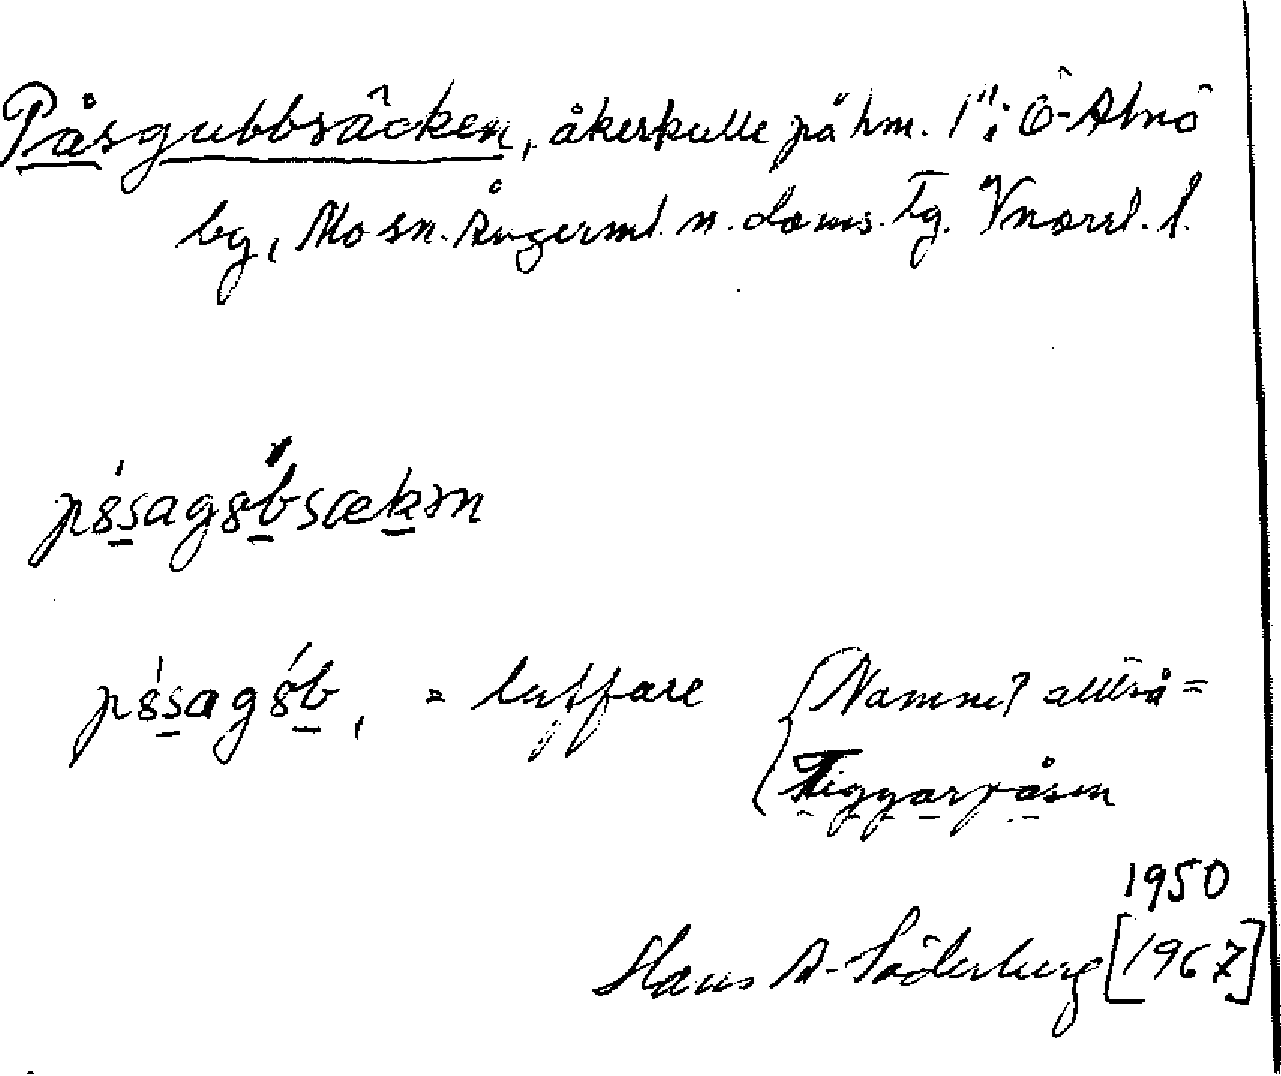 Påsgubbsäcken, åkerkulle på hm. 1": Ö-Alnö
by, Mo sn. Ångerml. n. doms. Tg. Vnorrl. l.
pȣsagȣbsækən
pȣsagȣb, = luffare {Namnet alltså =
Tiggarpåsen
1950
Hans A. Söderberg [1967]